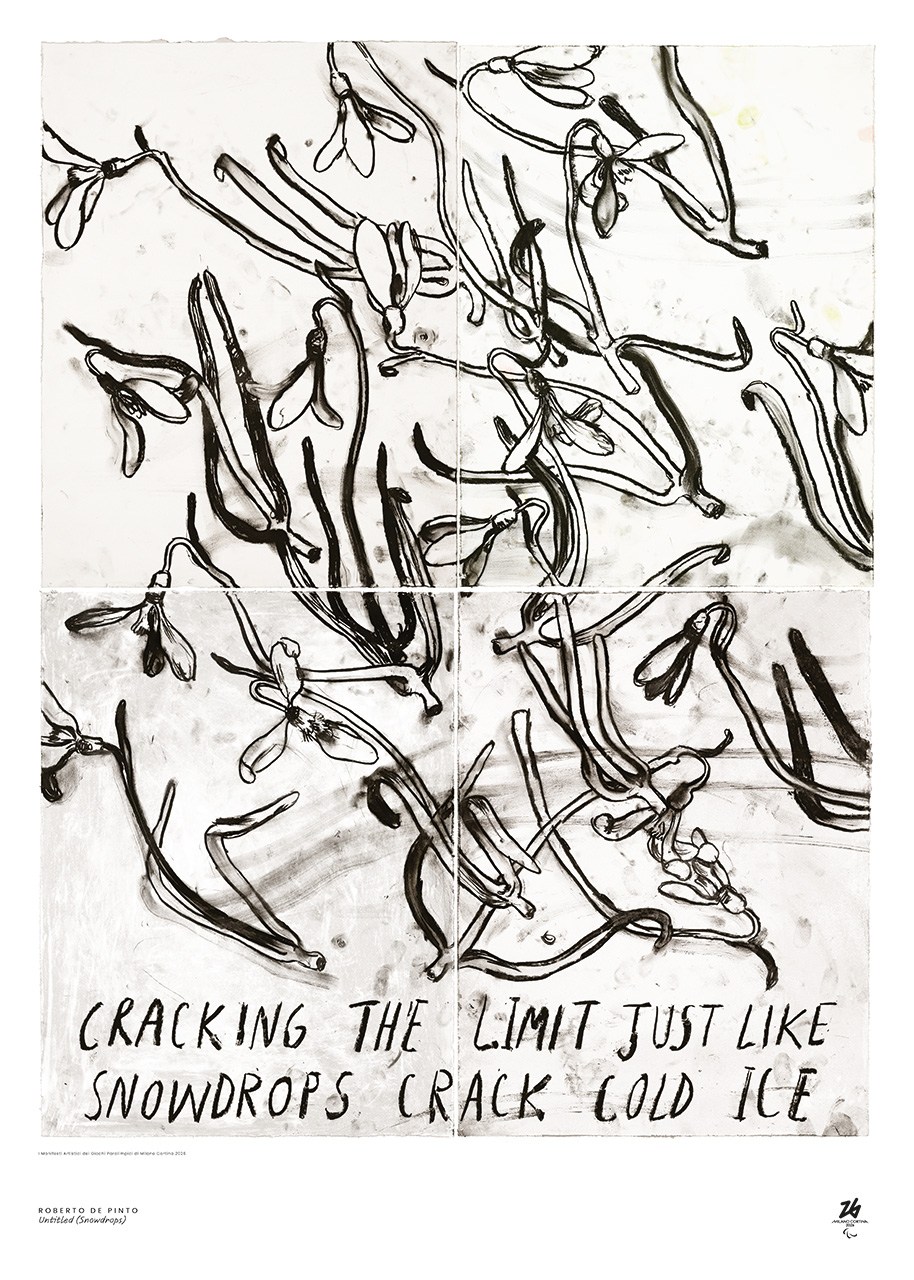 CRACKING THE LIMIT JUST LIKE
SNOWDROPS CRACK COLD ICE
I Manifesti Artistici dei Giochi Paralimpici di Milano Cortina 2026
ROBERTO DE PINTO
Untitled (Snowdrops)
26
MILANO CORTINA
2026